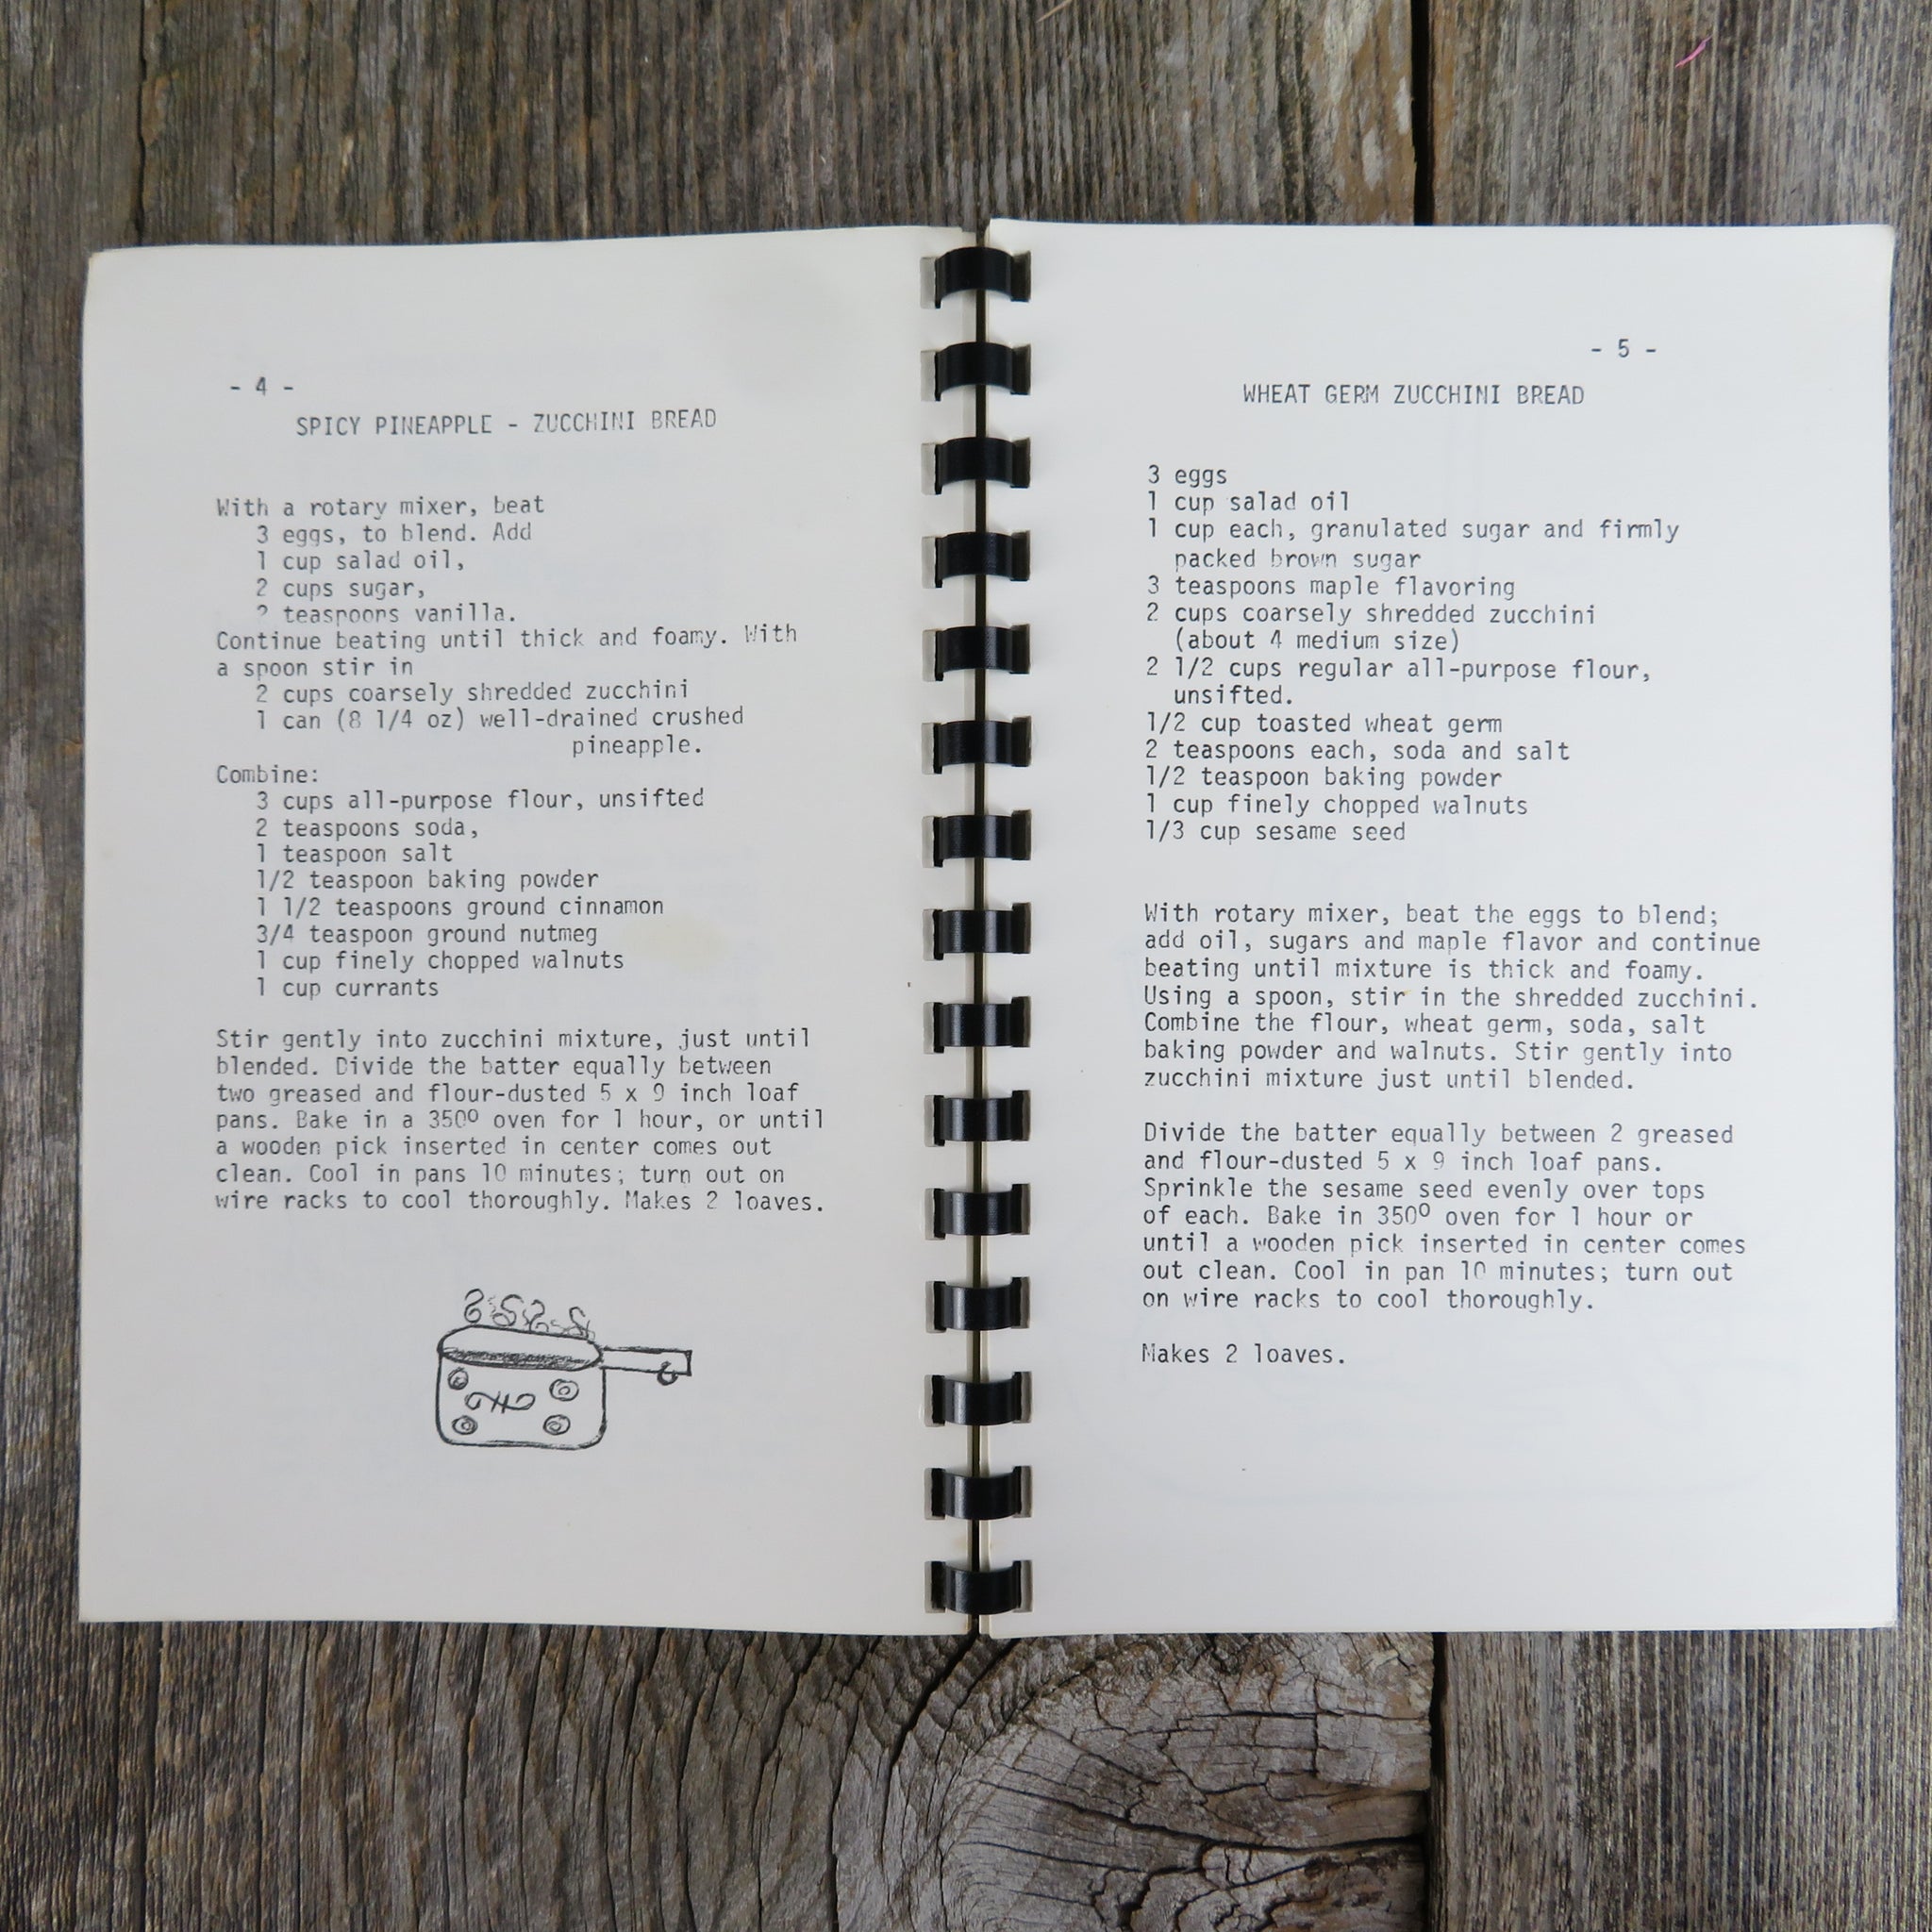 - 4 -
SPICY PINEAPPLE - ZUCCHINI BREAD
With a rotary mixer, beat
3 eggs, to blend. Add
1 cup salad oil,
2 cups sugar,
2 teaspoons vanilla.
Continue beating until thick and foamy. With
a spoon stir in
2 cups coarsely shredded zucchini
1 can (8 1/4 oz) well-drained crushed
pineapple.
Combine:
3 cups all-purpose flour, unsifted
2 teaspoons soda,
1 teaspoon salt
1/2 teaspoon baking powder
1 1/2 teaspoons ground cinnamon
3/4 teaspoon ground nutmeg
1 cup finely chopped walnuts
1 cup currants
Stir gently into zucchini mixture, just until
blended. Divide the batter equally between
two greased and flour-dusted 5 x 9 inch loaf
pans. Bake in a 350º oven for 1 hour, or until
a wooden pick inserted in center comes out
clean. Cool in pans 10 minutes; turn out on
wire racks to cool thoroughly. Makes 2 loaves.
- 5 -
WHEAT GERM ZUCCHINI BREAD
3 eggs
1 cup salad oil
1 cup each, granulated sugar and firmly
packed brown sugar
3 teaspoons maple flavoring
2 cups coarsely shredded zucchini
(about 4 medium size)
2 1/2 cups regular all-purpose flour,
unsifted.
1/2 cup toasted wheat germ
2 teaspoons each, soda and salt
1/2 teaspoon baking powder
1 cup finely chopped walnuts
1/3 cup sesame seed
With rotary mixer, beat the eggs to blend;
add oil, sugars and maple flavor and continue
beating until mixture is thick and foamy.
Using a spoon, stir in the shredded zucchini.
Combine the flour, wheat germ, soda, salt
baking powder and walnuts. Stir gently into
zucchini mixture just until blended.
Divide the batter equally between 2 greased
and flour-dusted 5 x 9 inch loaf pans.
Sprinkle the sesame seed evenly over tops
of each. Bake in 350º oven for 1 hour or
until a wooden pick inserted in center comes
out clean. Cool in pan 10 minutes; turn out
on wire racks to cool thoroughly.
Makes 2 loaves.